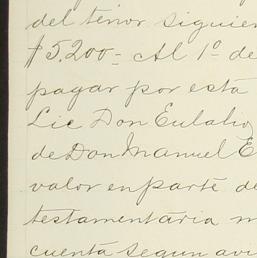 del tenor siguien
$5.200- Al 1º de
pagar por esta
Lic Don Eulalio
de Don Manuel E
valor en parte de
testamentaria m
cuenta segun avi